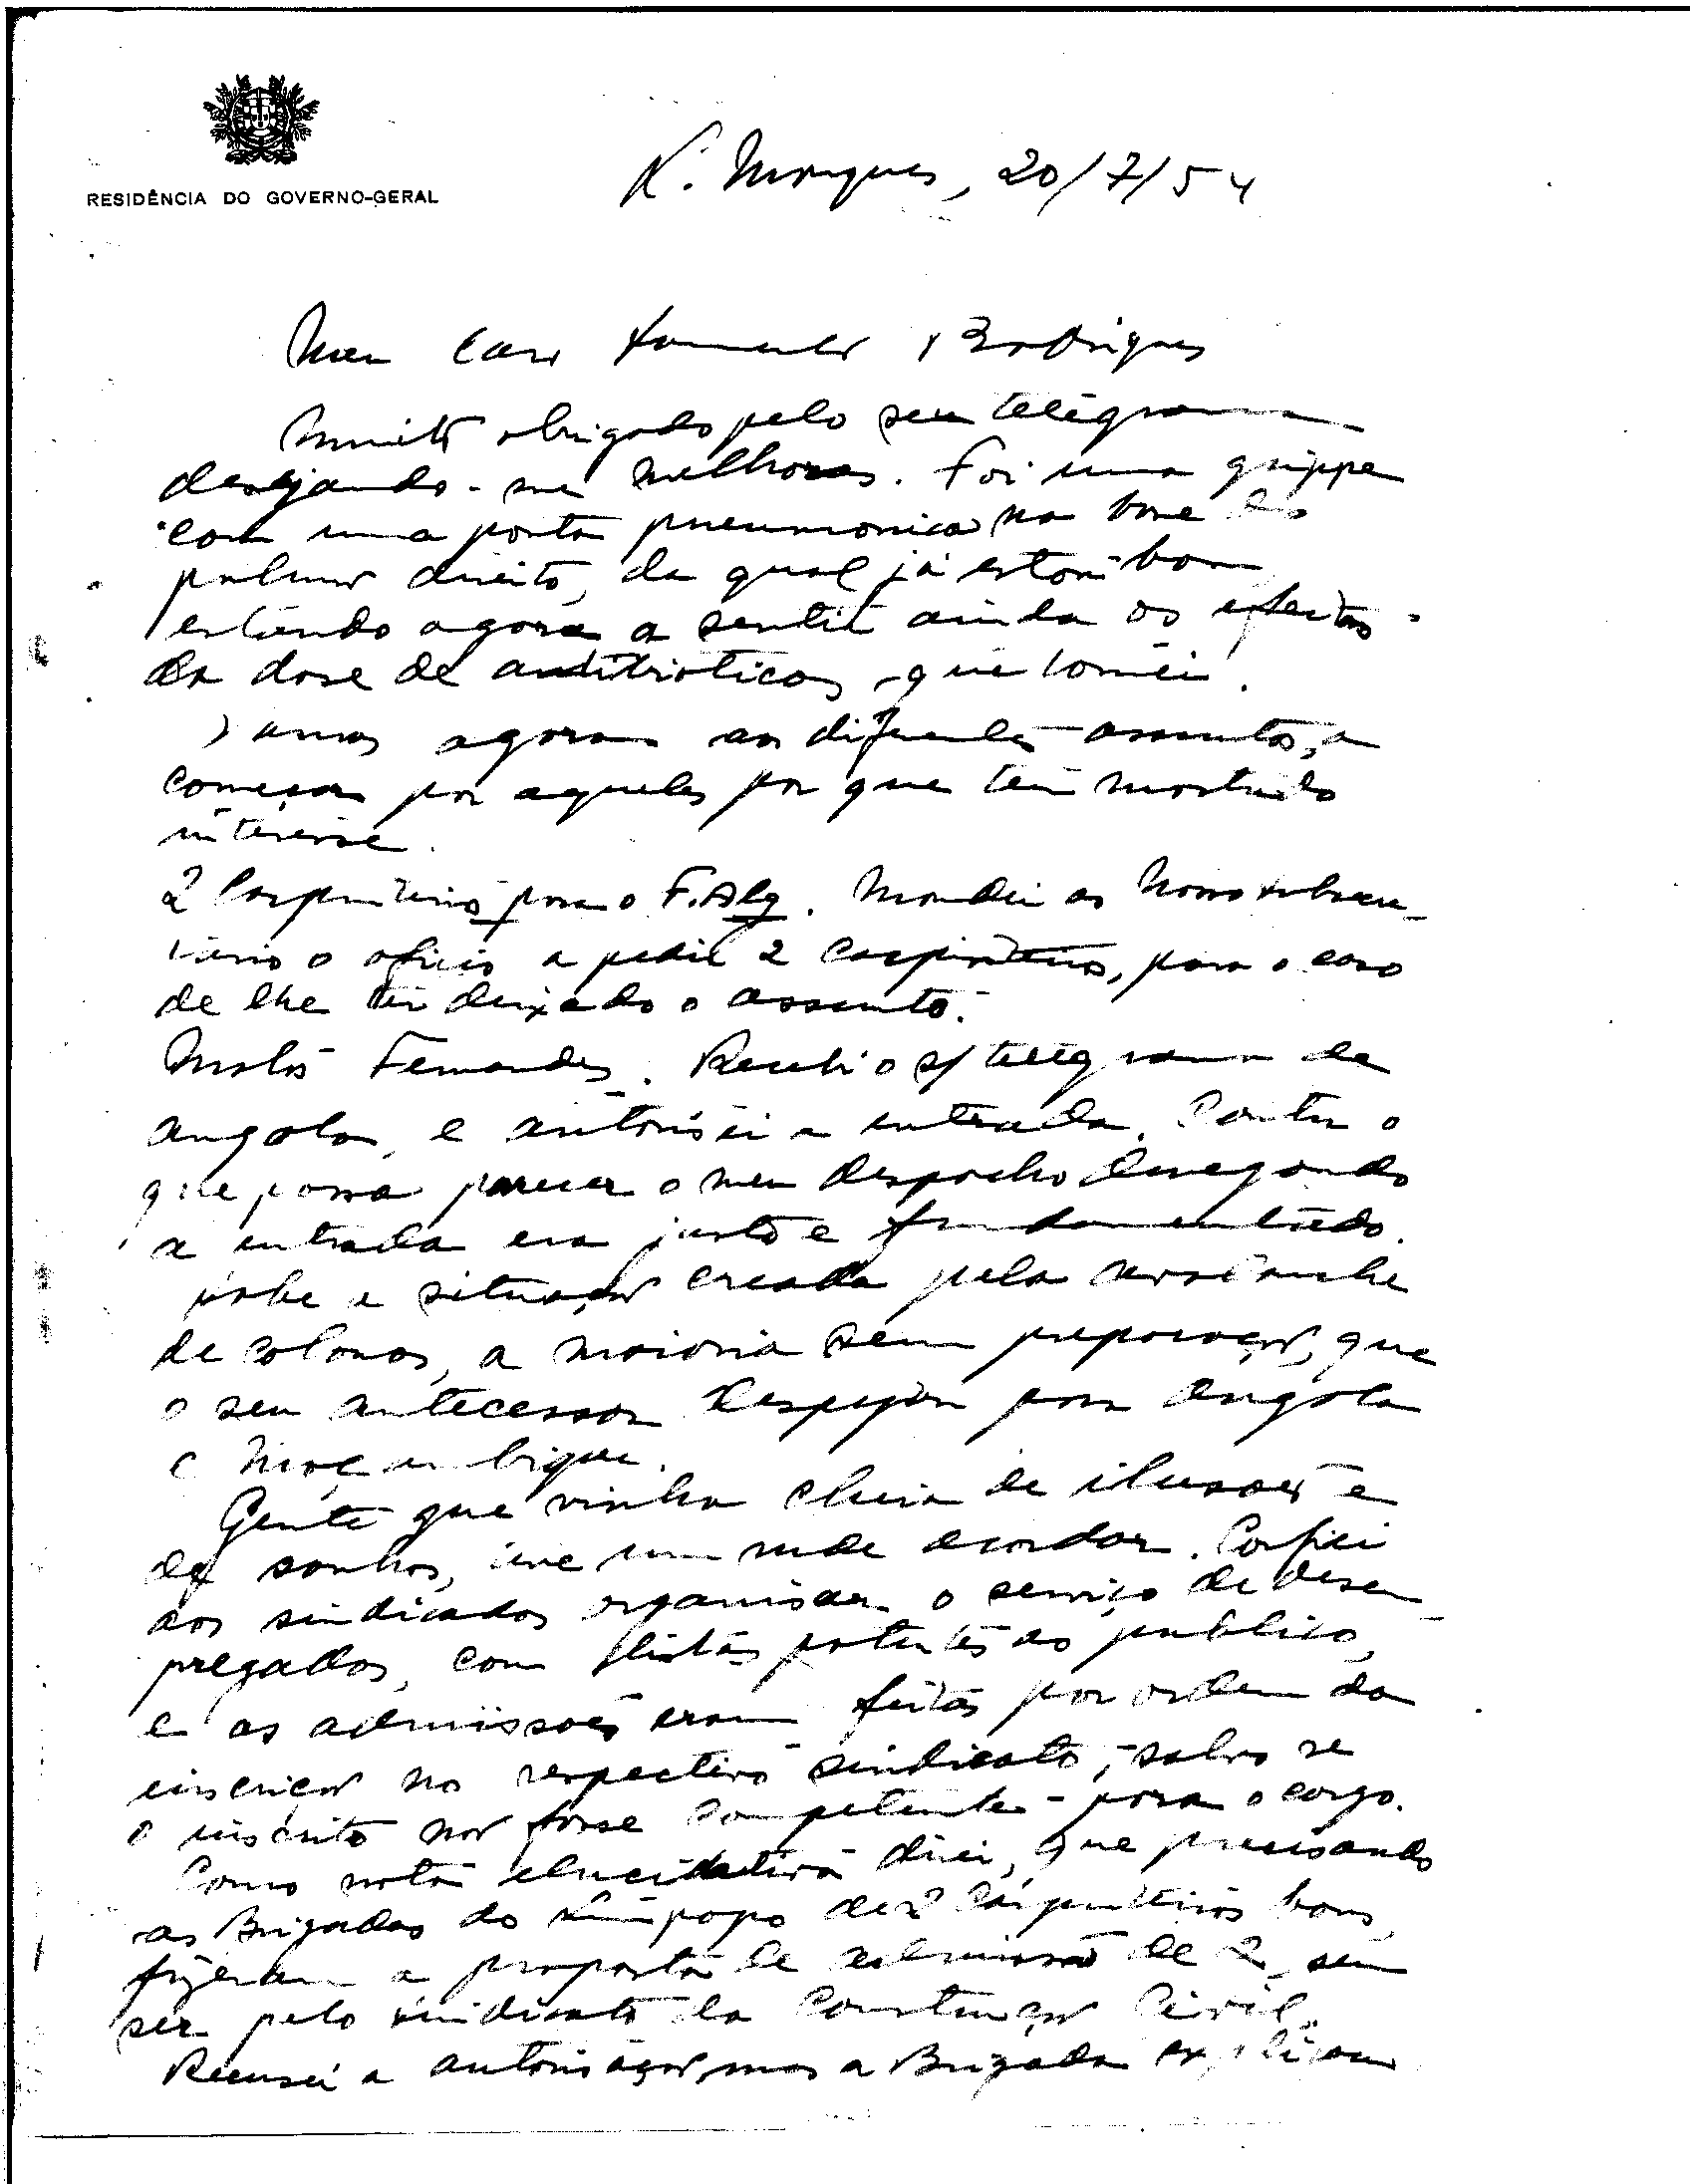 RESIDÊNCIA DO GOVERNO-GERAL
L. Marques, 20/7/54
Meu caro Rodrigues
Muito obrigado pelo seu telegrama
desejando-me melhoras. Foi uma grippe
com uma ponta pneumonica na base do
pulmão direito, da qual já estou bom
estando agora a sentir ainda os efeitos
da dose de antibioticos que tomei.
Vamos agora aos diferentes assuntos, a
começar por aqueles por que tem mostrado
interesse.
2 Carpinteiros para o F. Alg. Mandei ao Novo
o oficio a pedir 2 carpinteiros, para o caso
de lhe ter deixado o assunto.
Fernandes. Recebi o s/ telegrama de
Angola, e autorisei a entrada. Contra o
que possa parecer o meu despacho denegando
a entrada era justo e fundamentado.
Sabe a situação creada pela avalanche
de colonos, a maioria sem preparação, que
o seu antecessor despejou para Angola
e Moçambique.
Gente que vinha cheia de ilusões e
de sonhos, teve um rude acordar.
aos sindicatos organisar o serviço de desem-
pregados, com listas patentes ao publico,
e as admissões eram feitas por ordem da
inscrição no respectivo sindicato, salvo se
o inscrito não fosse competente para o cargo.
Como nota elucidativa direi, que precisando
as Brigadas do Limpopo de 2 carpinteiros bons,
fizeram a proposta de admissão de 2, sem
ser pelo sindicato da Construção Civil.
Recusei a autorisação, mas a Brigada explicou